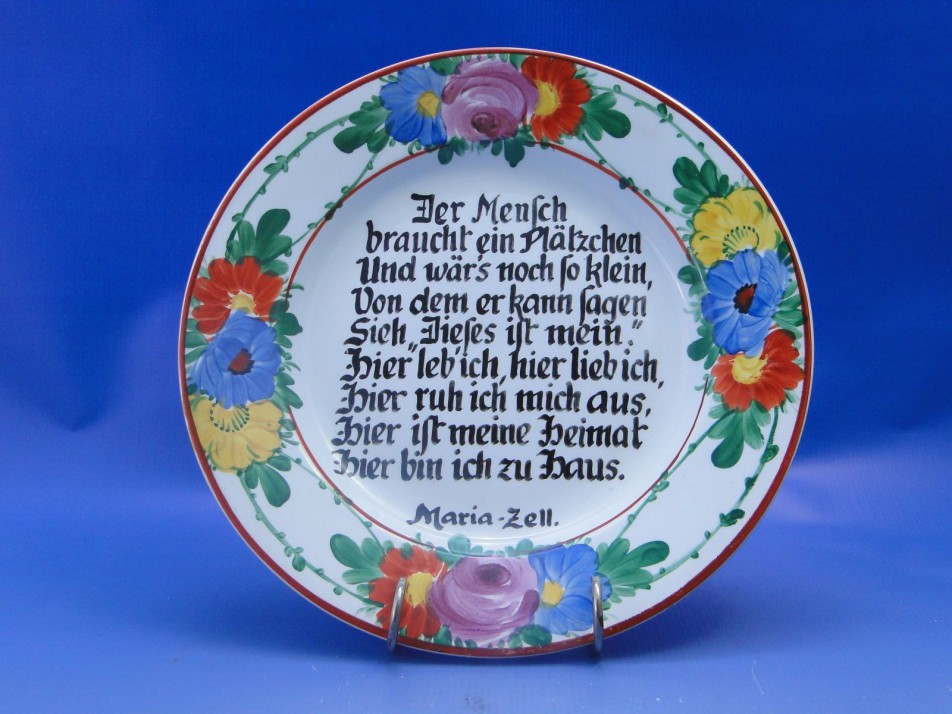 Der Mensch
braucht ein Plätzchen
Und wär's noch so klein,
Von dem er kann sagen
Sieh „Dieses ist mein."
Hier leb' ich, hier lieb ich,
Hier ruh ich mich aus,
Hier ist meine Heimat
Hier bin ich zu Haus.
Maria-Zell.